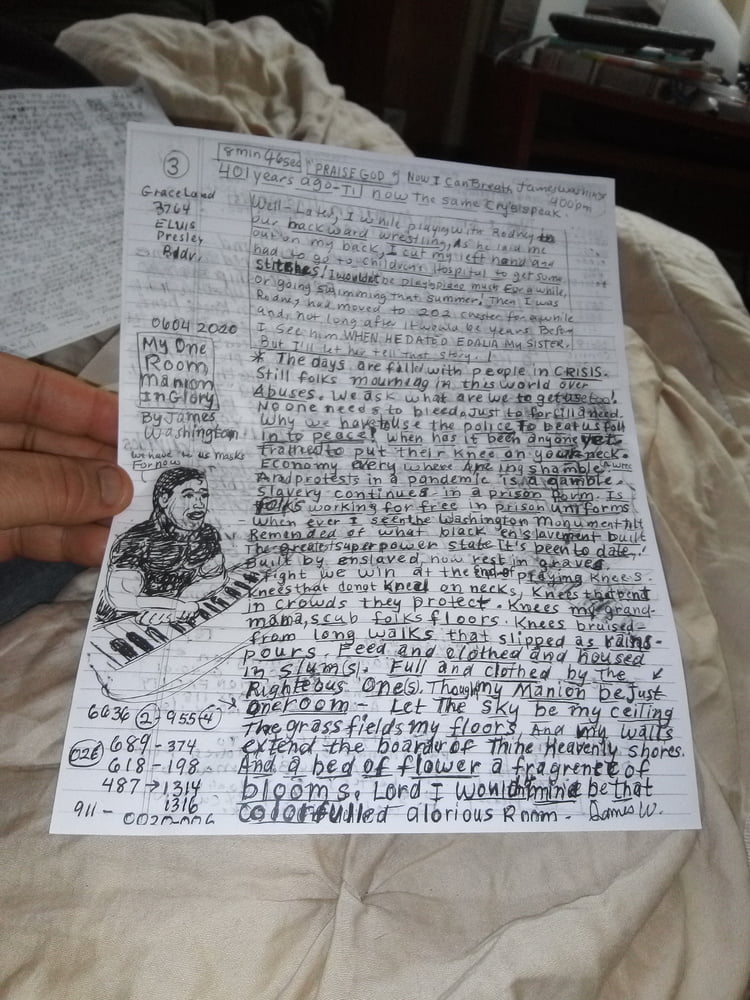 3
8 min 46 sec "PRAISE GOD" Now I Can Breath James Washington
401 years ago-Til now the same Cry's I speak. 400pm
GraceLand
3764
ELVIS
Presley
Well-Later, I while playing with Rodney in
our backward wrestling, As he laid me
out on my back, I cut my left hand and
had to go to Childrens Hospital to get some
Stitches! I wouldnt be playing piano much for a while,
or going swimming that summer. Then I was
Rodney had moved to 202 chester for awhile
and, not long after it would be years Before
I see him WHEN HE DATED EDALIA MY SISTER.
But I'll let her tell that story.!
0604 2020
My One
Room
Manion
In Glory
By James
Washington
we have to us masks
For now
* The days are filled with people in CRISIS.
Still folks mourning in this world over
Abuses. We ask what are we to get use too!
No one needs to bleed, Just to forfill a need.
Why we have to use the police To beat us folk
in to peace! when has it been anyone yet
trained to put their knee on your neck.
Economy every where are ing shamble
And protests in a pandemic is a gamble.
Slavery continues in a prison form. Is
folks working for free in prison uniforms
When ever I seen the Washington Monument
Remended of what black enslavement built
The great superpower state it's been to date,
Built by enslaved, now rest in graves.
fight we win at the end of praying knees.
Knees that do not kneel on necks, Knees that
in crowds they protect. Knees my grand-
mama, scub folks floors. Knees bruised
from long walks that slipped as rains-
pours. Feed and clothed and housed
in slum(s). Full and clothed by the
Righteous One(s). Though my Manion be just
one room - Let The Sky be my ceiling
The grass fields my floors, And my walls
extend the board of Thine Heavenly shores.
And a bed of flower a fragrence of
blooms. Lord I wouldnt mind be that
colorfulled glorious Room - James W.
6636 2-955 4
026 689-374
618-198
487→1314
1316
911-